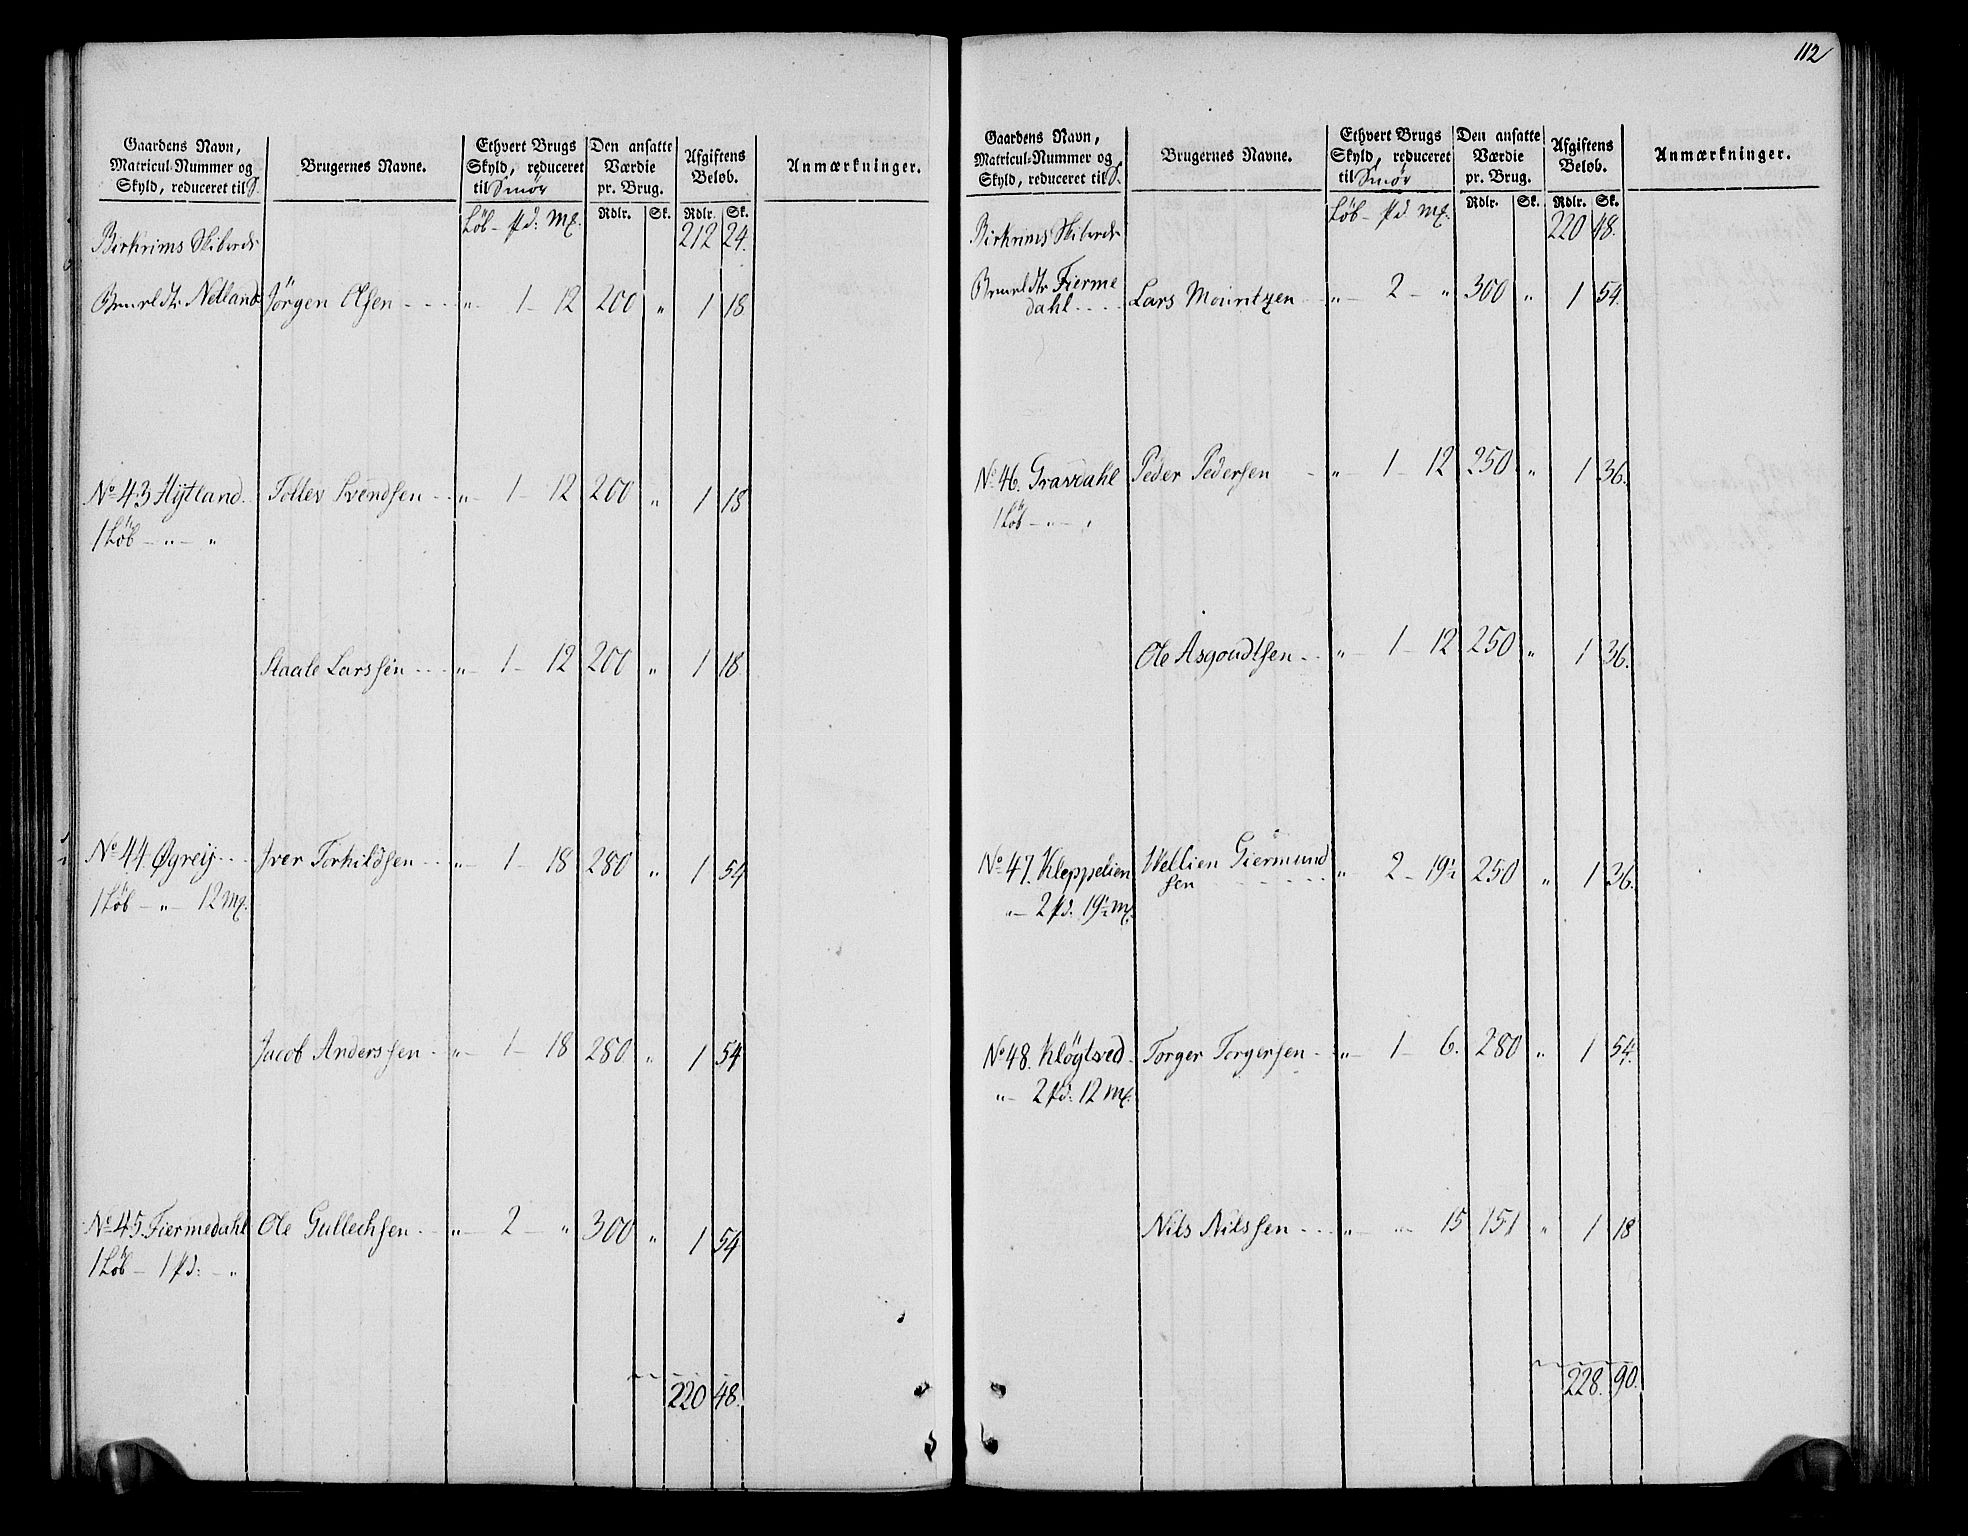 Gaardens Navn, Matricul-Nummer og Skyld, reduceret til S. | Brugernes Navne. | Ethvert Brugs Skyld, reduceret til Smör | Den ansatte Værdie pr. Brug. | Afgiftens Beløb. | Anmærkninger.
Löb - pd: mƺ. | Rdlr. | Sk. | Rdlr. | Sk.
Birkrims Skibrede | 212 | 24.
Netland | Jörgen Olsen - - - - „ - 1 - 12 | 200 | „ | 1 | 18
No 43 Hytland | Tollev Svendsen - - „ - 1 - 12 | 200 | „ | 1 | 18
1 Löb - „ - „
Staale Larssen - - - „ - 1 - 12 | 200 | „ | 1 | 18
No 44 Øgreij - - - | Iver Torkildsen - - - „ - 1 - 18 | 280 | „ | 1 | 54
1 Löb - „ - 12 mƺ.
Jacob Anderssen - - „ - 1 - 18 | 280 | „ | 1 | 54
No 45. Fiermedahl | Ole Gullechsen - - „ - 2 - „ | 300 | „ | 1 | 54
1 Löb - 1 pd: - „
220 | 48.
112
Gaardens Navn, Matricul-Nummer og Skyld, reduceret til S. | Brugernes Navne. | Ethvert Brugs Skyld, reduceret til Smör | Den ansatte Værdie pr. Brug. | Afgiftens Beløb. | Anmærkninger.
Löb - pd mƺ. | Rdlr. | Sk. | Rdlr. | Sk.
Birkrims Skibrede | 220 | 48.
Fierme
dahl - - - - | Lars Mouritzen - - „ - 2 - „ | 300 | „ | 1 | 54.
No 46. Gravdahl | Peder Pedersen - „ - 1 - 12 | 250 | „ | 1 | 36.
1 Löb - „ - „
Ole Asgoudtsen - - „ - 1 - 12 | 250 | „ | 1 | 36.
No 47. Kleppelien | Wellien Giermund
sen - - - - - „ 2 - 19½ | 250 | „ | 1 | 36.
„ - 2 pd: 19½ mƺ.
No 48. Klögtved | Torger Torgersen - - „ - 1 - 6. | 280 | „ | 1 | 54.
„ - 2 pd: 12 mƺ.
Nils Nilssen - - - „ - „ - 15 | 151 | „ | 1 | 18
228. | 90.